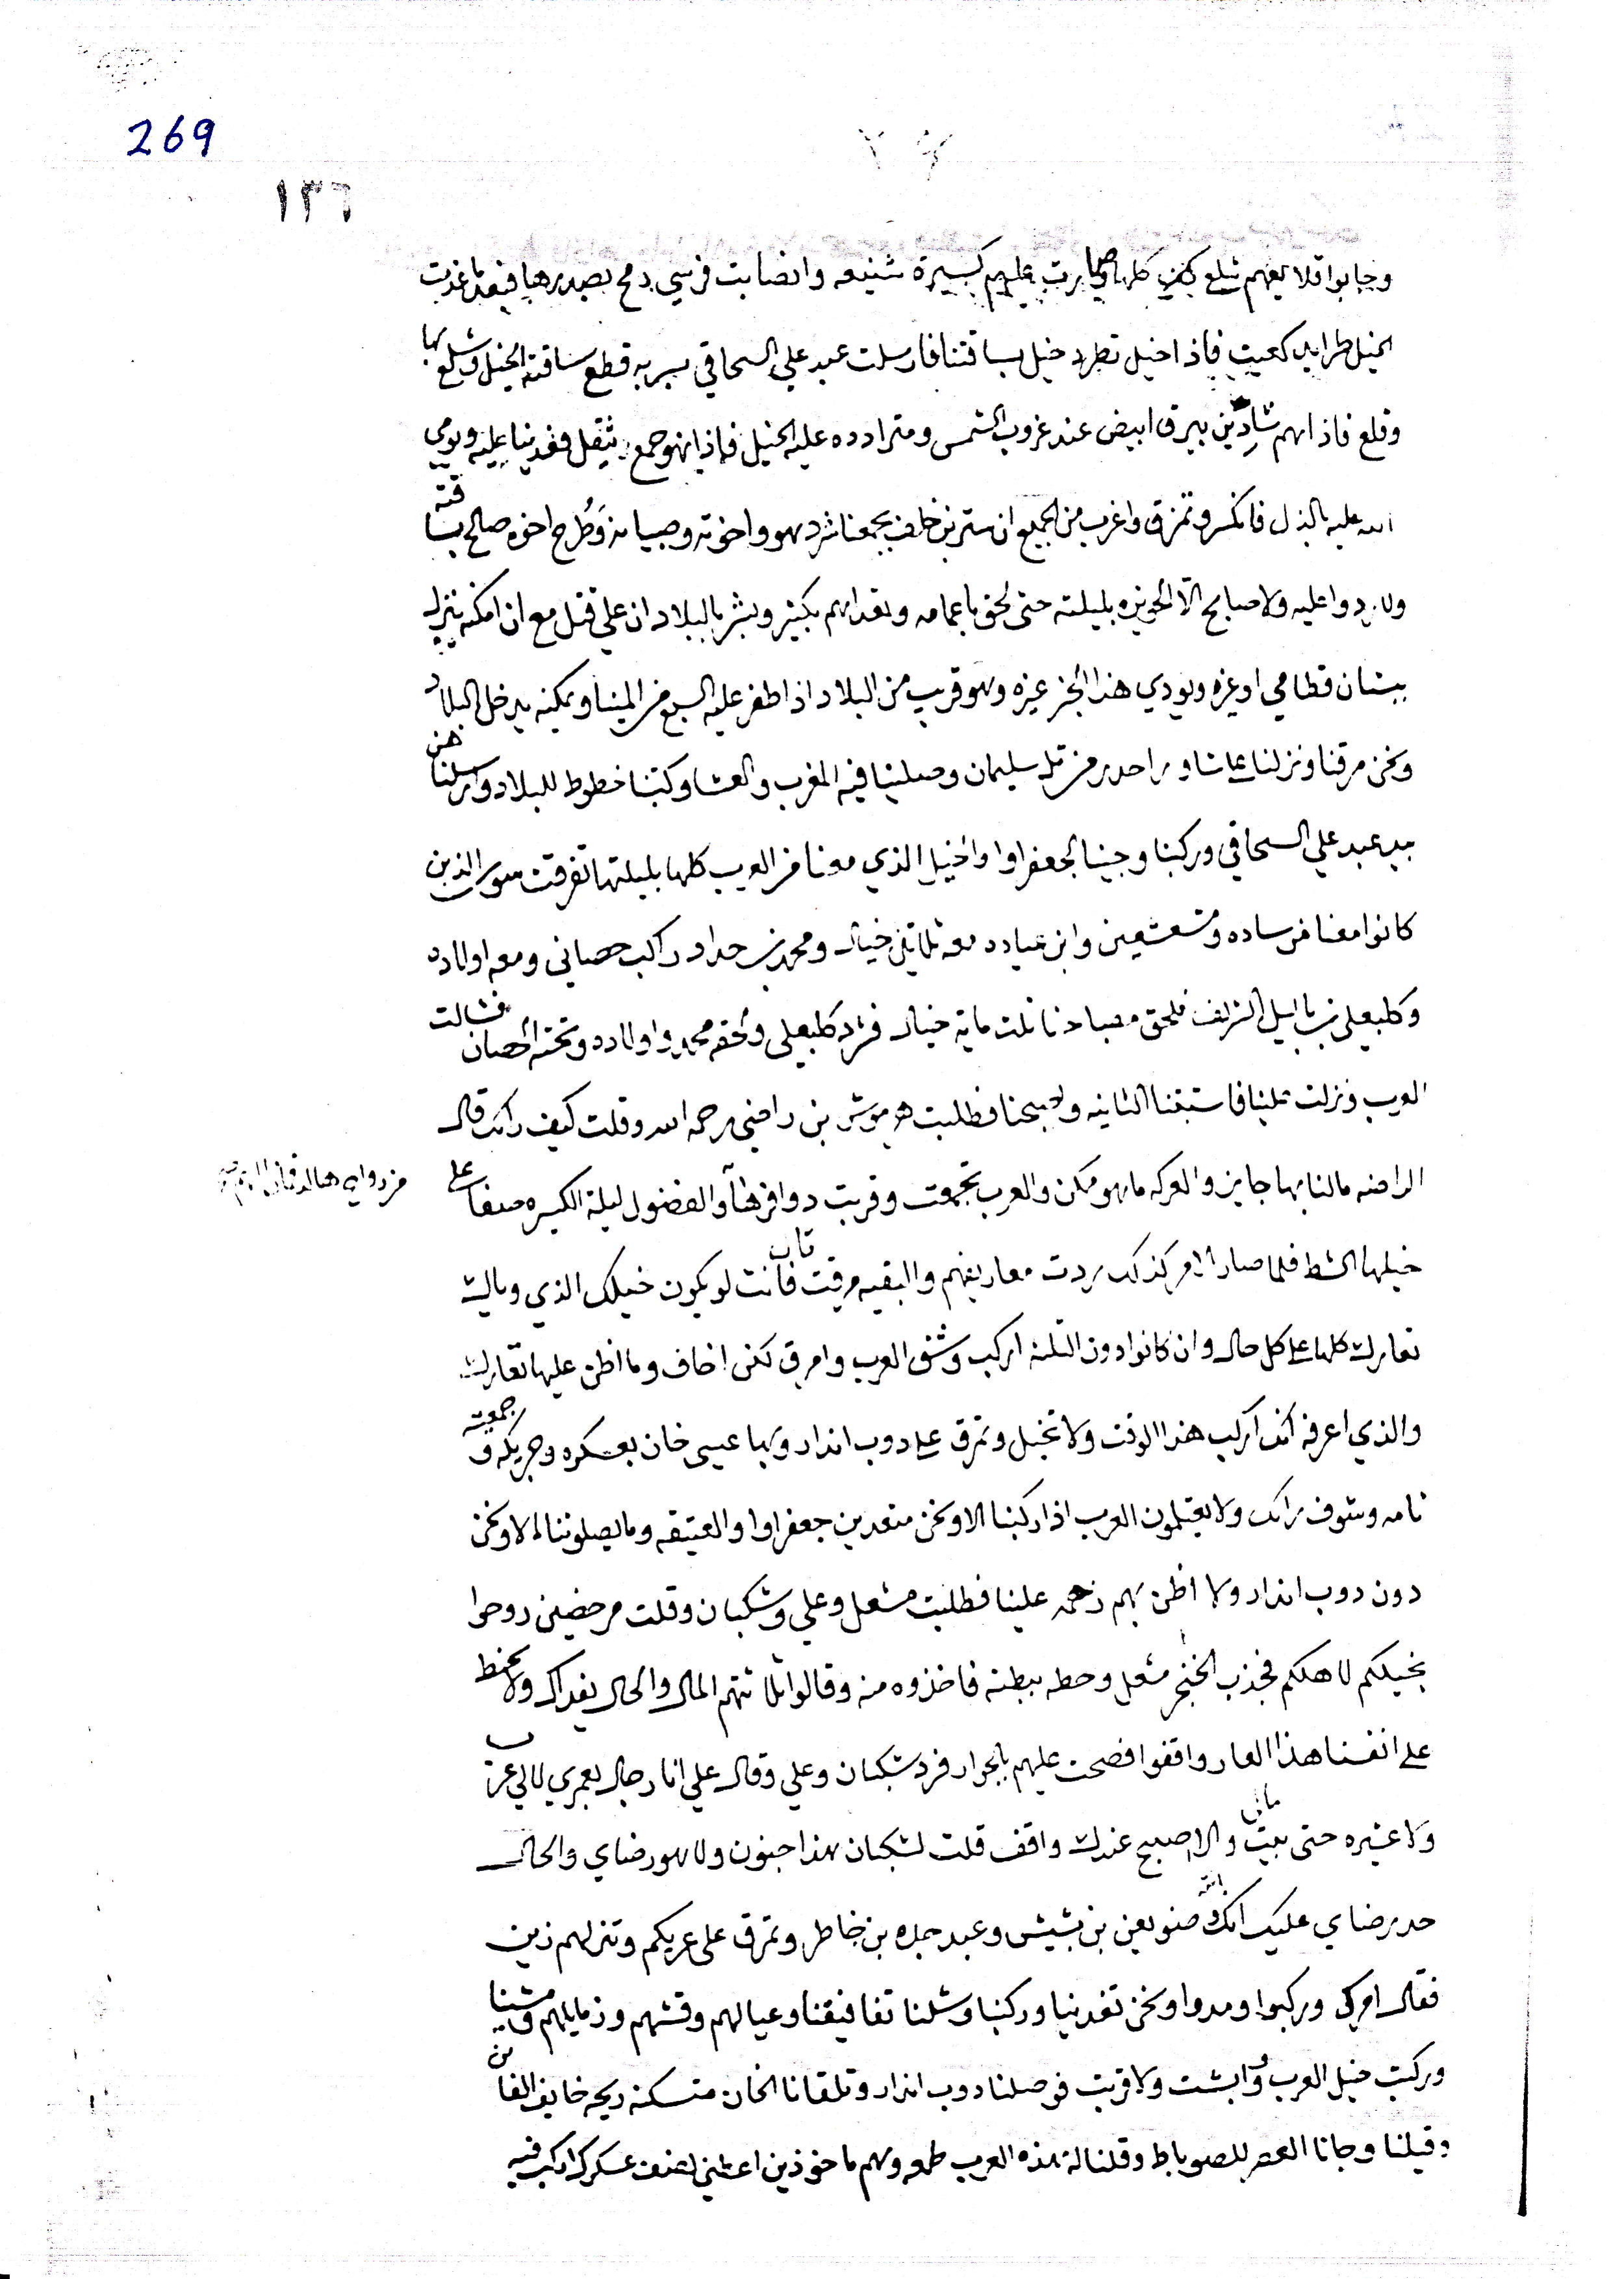 269
١٣٦
وجابوا قلايعهم شلع كلها وصارت عليهم كسيرة شنيعه وانصابت فرسي رمح بصدرها فبعد ما غدت
الخيل طرايد كعيت فاذا خيل تطرد خيل بساقتنا فارسلت عبد علي السحاقي بسربه قطع ساقته الخيل وشلع بها
وقلع فاذا هم شادين بيرق ابيض عند غروب الشمس ومترادده عليه الخيل فاذا هو جمع ثقل فغدينا عليه ويومي
الله عليه بالذل فانكسر وتمزق واغرب من الجميع ان ستر بن خلف بجمعنا شرد هو واخوته وصبيانه وطرح اخوه صالح بساقته
ولا ردوا عليه ولا صابح الا الحويزه بليلته حتى لحق باعمامه وبشر بالبلاد ان علي قتل مع ان امكنه ينزل
ببستان قطامي او غيره ويودي هذا الخبر غيره وهو قريب من البلاد اذا ظفر عليه السبع من المينا ويمكنه يدخل البلاد
ونحن مرقنا ونزلنا على شاور احدر من تل سليمان وصلينا فيه المغرب والعشا وكتبنا خطوط للبلاد وارسلناهن
بيد عبد علي السحاقي وركبنا وجينا الجعفراوا والخيل الذي معنا من العرب كلها بليلتها تفرقت سوى الذين
كانوا معنا من ساده ومشعشعين وابن عباده معه ثلاثين خيال ومحمد بن حداد راكب حصاني ومعه اولاده
وكلبعلي بن بابيل الشريف فلحق مصباحنا ثلت مايه خيال فشرد كلبعلي ولحقه محمد واولاده وتحته الحصان فشالت
العرب ونزلت علينا فاستبقنا الثانيه ولا صبحنا فطلبت هرموش بن راضي رحمه الله وقلت كيف رايك قال
الراضه مالنا بها جايز والعركه ماهو ممكن والعرب تجمعت وقربت دوافرها والفضول ليلة الكسيره صفا على
خيلها الشط فلما صار الامر كذلك ردت معاريفهم والبقيه مرقت فانت لو يكون خيلك الذي وياك
تعارك كلها على كل حال وان كانوا دون الثلثه اركب وشق العرب وامرق لكني اخاف وما اظن عليها تعارك
والذي اعرفه انك اركب هذا الوقت ولا تخيل وتمرق على دوب اندار وبها عيسى خان بعسكره وجريكه وجمعته
تامه وشوف رايك ولا يقبلون العرب اذا ركبنا الا ونحن متعدين جعفراوا والعتيقه وما يصلوننا الا ونحن
دون دوب اندار ولا اظن بهم زحمه علينا فطلبت مشعل وعلي وشكبان وقلت مرخصين روحوا
بخيلكم لاهلكم فجذب الخنجر مشعل وحطه ببطنه فاخذوه منه وقالوا ثلاثتهم المال والحال يفداك ولا نحط
على انفسنا هذا العار واقفوا فصحت عليهم بالجوار فرد شبكان وعلي وقال علي انا رجال بعمري لا لي عرب
ولا عشيره حتى يبيت والا اصبح عندك واقف قلت لشكبان هذا جنون ولا هو رضاي والحال
حد رضاي عليك انك وصنو يعن بن بشيش وعبد جبله بن خاطر وتمرق على عربكم وتنزلهم زين
فقال امركم وركبوا ومدوا ونحن تغدينا وركبنا وشلنا تفافيقنا وعيالهم وقشهم وزمايلهم ومشينا
وركبت خيل العرب وابشت ولا قربت فوصلنا دوب اندار وتلقانا الخان متسكنه ريحه خايف الفامن
وقيلنا وجانا العصر للصوباط وقلنا له هذه العرب طمعه وهم ماخوذين اعطني نصف عسكرك اركب فيه